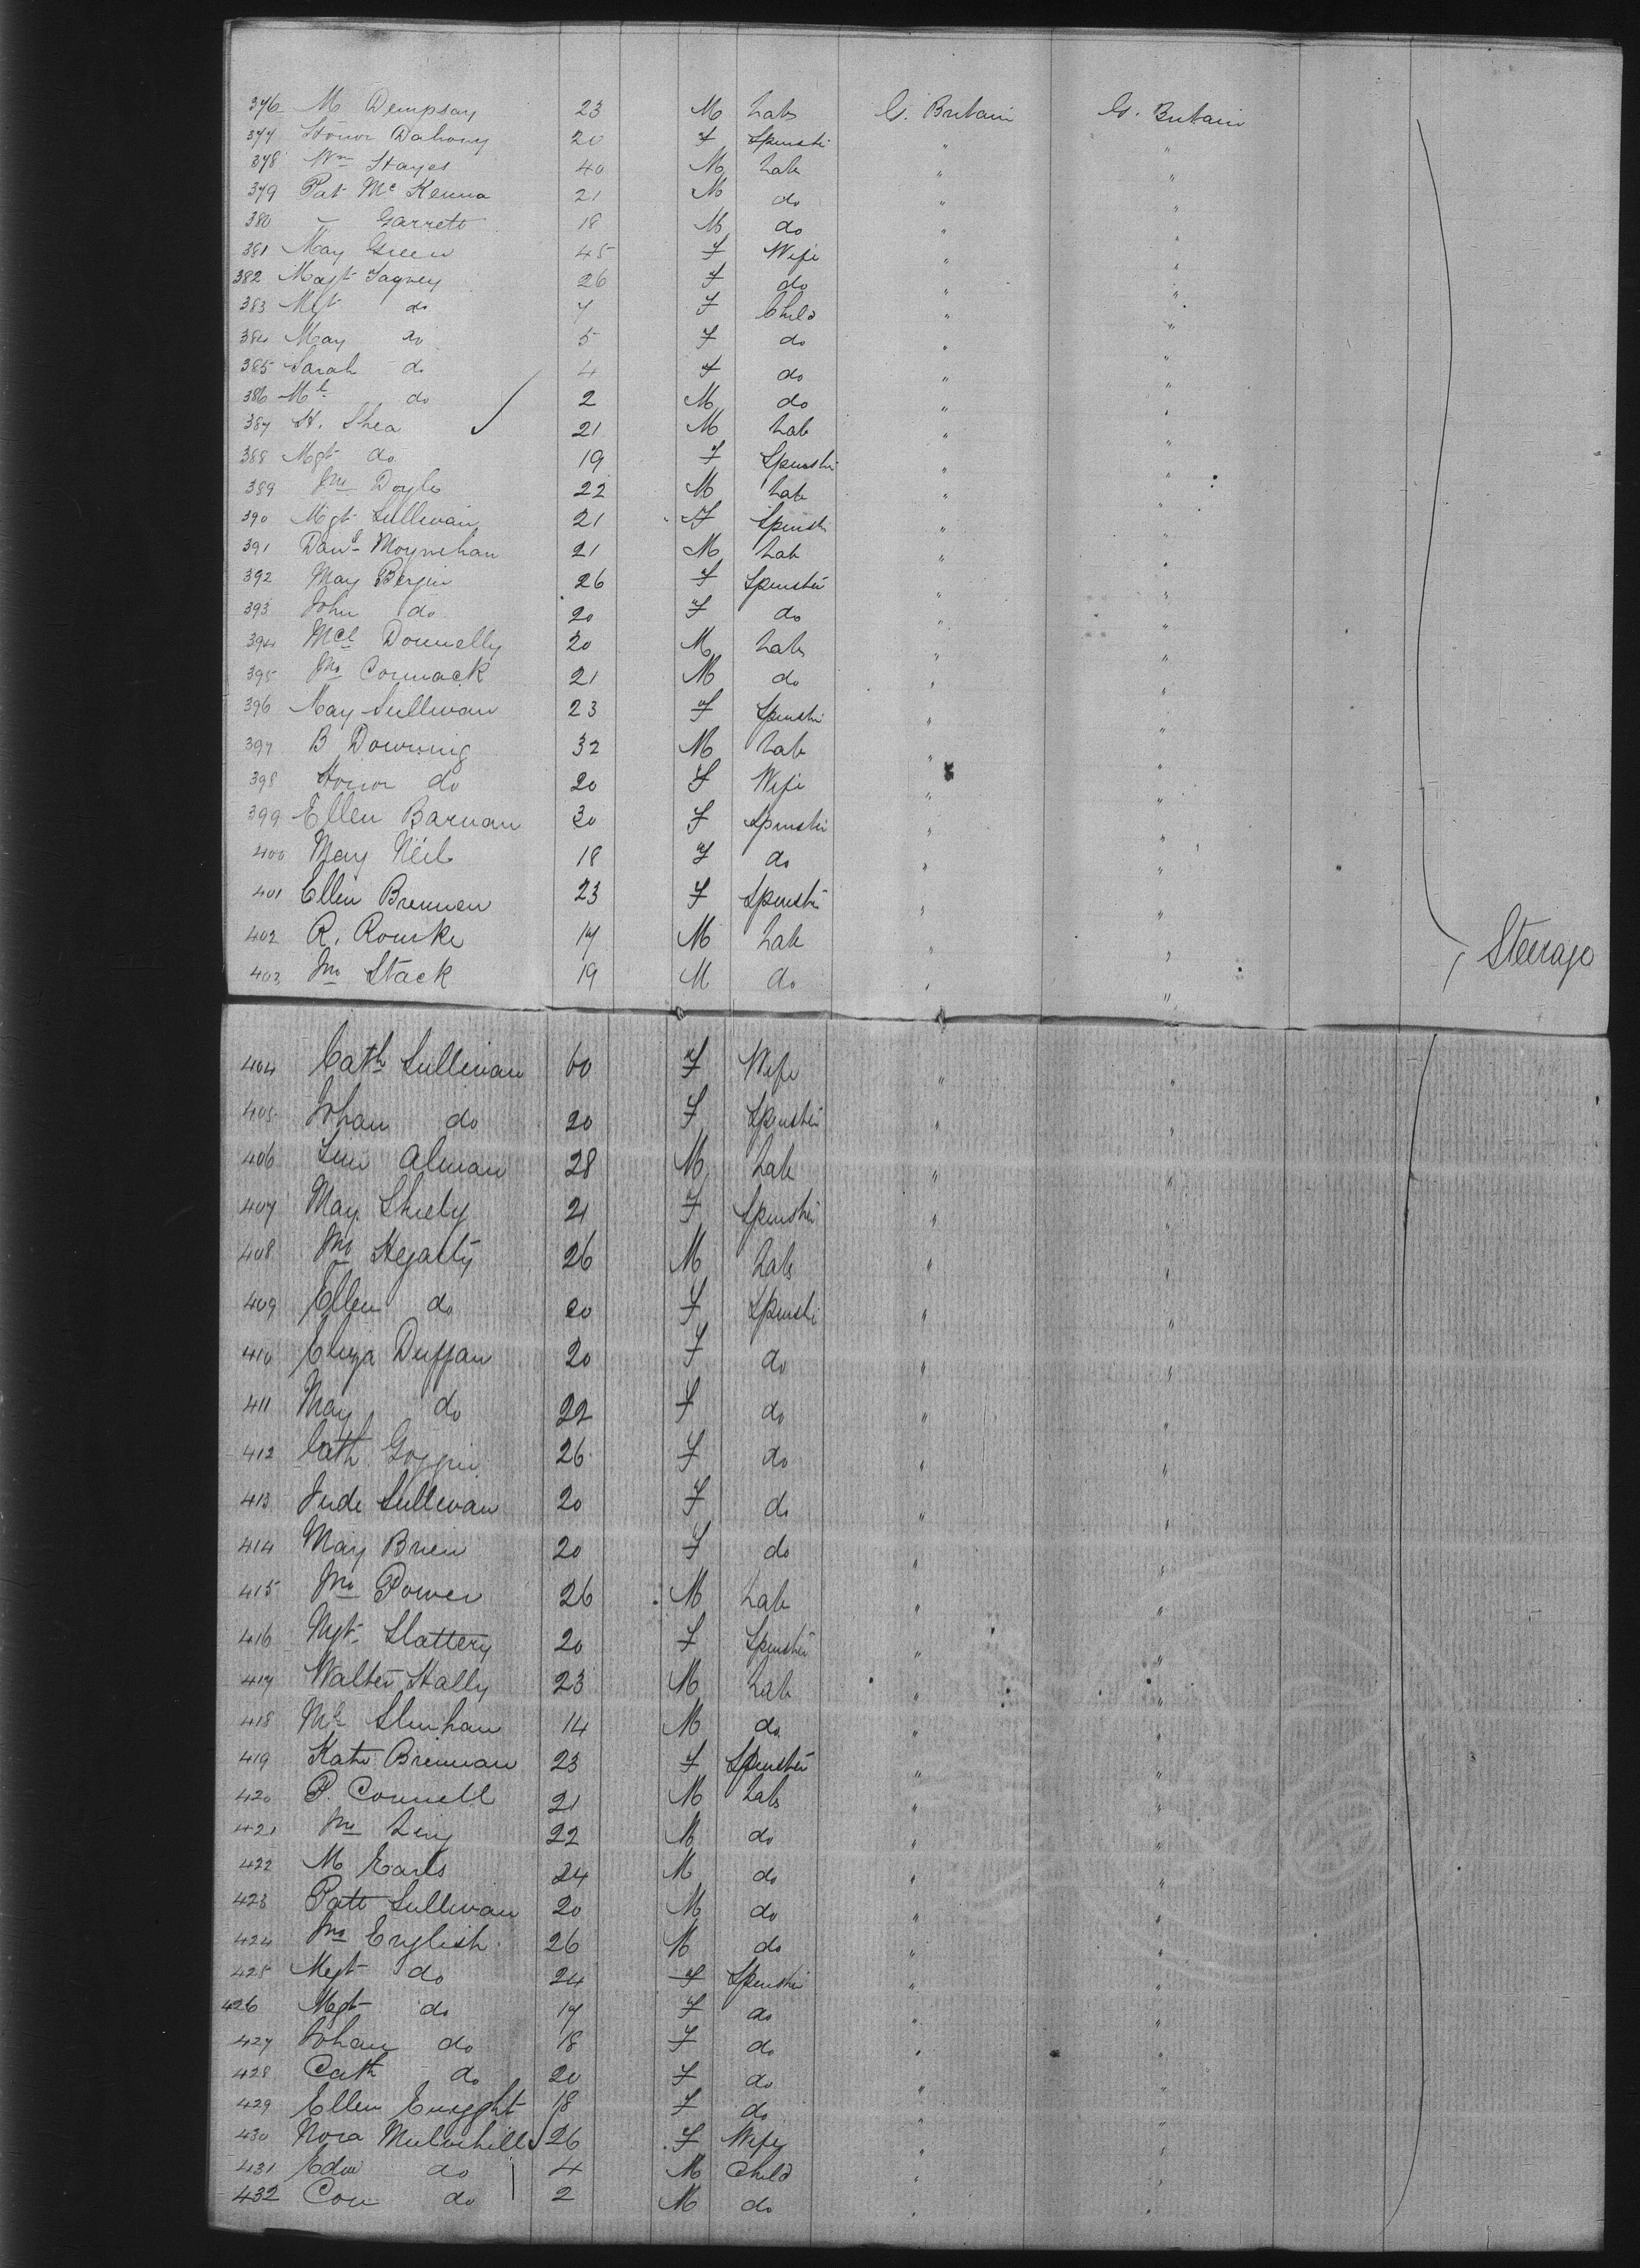 376 M Dempsay 23 M Lab G. Britain G. Britain
377 Honor Dahony 20 F Spinster " "
378 Wm Hayes 40 M Lab " "
379 Pat Mc Kenna 21 M do " "
380 " Garrett 18 M do " "
381 May Green 45 F Wife " "
382 Magt 26 F do " "
383 Mgt do 7 F Child " "
384 May do 5 F do " "
385 Sarah do 4 F do " "
386 Ml do 2 M do " "
387 H. Shea 21 M Lab " "
388 Mgt do 19 F Spinster " "
389 Jno Doyle 22 M Lab " "
390 Mgt Sullivan 21 F Spinst " "
391 Danl Moynehan 21 M Lab " "
392 May Bergin 26 F Spinster " "
393 John do 20 F do " "
394 Mcl Donnelly 20 M Lab " "
395 Jno Cormack 21 M do " "
396 May Sullivan 23 F Spinster " "
397 B Downing 32 M Lab " "
398 Honor do 20 F Wife " "
399 Ellen Barnan 30 F Spinster " "
400 May Neil 18 F do " "
401 Ellen Brennen 23 F Spinster " "
402 R. Rourke 17 M Lab " "
Steerage
403 Jno Stack 19 M do " "
404 Cath Sullivan 60 F Wife " "
405 Johan do 20 F Spinster " "
406 Alman 28 M Lab " "
407 May Shiely 21 F Spinster " "
408 Jno Hegarty 26 M Lab " "
409 Ellen do 20 F Spinster " "
410 Eliza Duffan 20 F do " "
411 May do 22 F do " "
412 Cath Goggin 26 F do " "
413 Jude Sullivan 20 F do " "
414 May Brien 20 F do " "
415 Jno Power 26 M Lab " "
416 Mgt Slattery 20 F Spinster " "
417 Walter Hally 23 M Lab " "
418 Ml 14 M do " "
419 Kate Brennan 23 F Spinster " "
420 P. Connell 21 M Lab " "
421 Jno 22 M do " "
422 M Earls 24 M do " "
423 Patt Sullivan 20 M do " "
424 Jno English 26 M do " "
425 Mgt do 24 F Spinster " "
426 Magt do 17 F do " "
427 Johan do 18 F do " "
428 Cath do 20 F do " "
429 Ellen Enryght 18 F do " "
430 Nora Mulvihill 26 F Wife " "
431 Edw do 4 M Child " "
432 Con do 2 M do " "